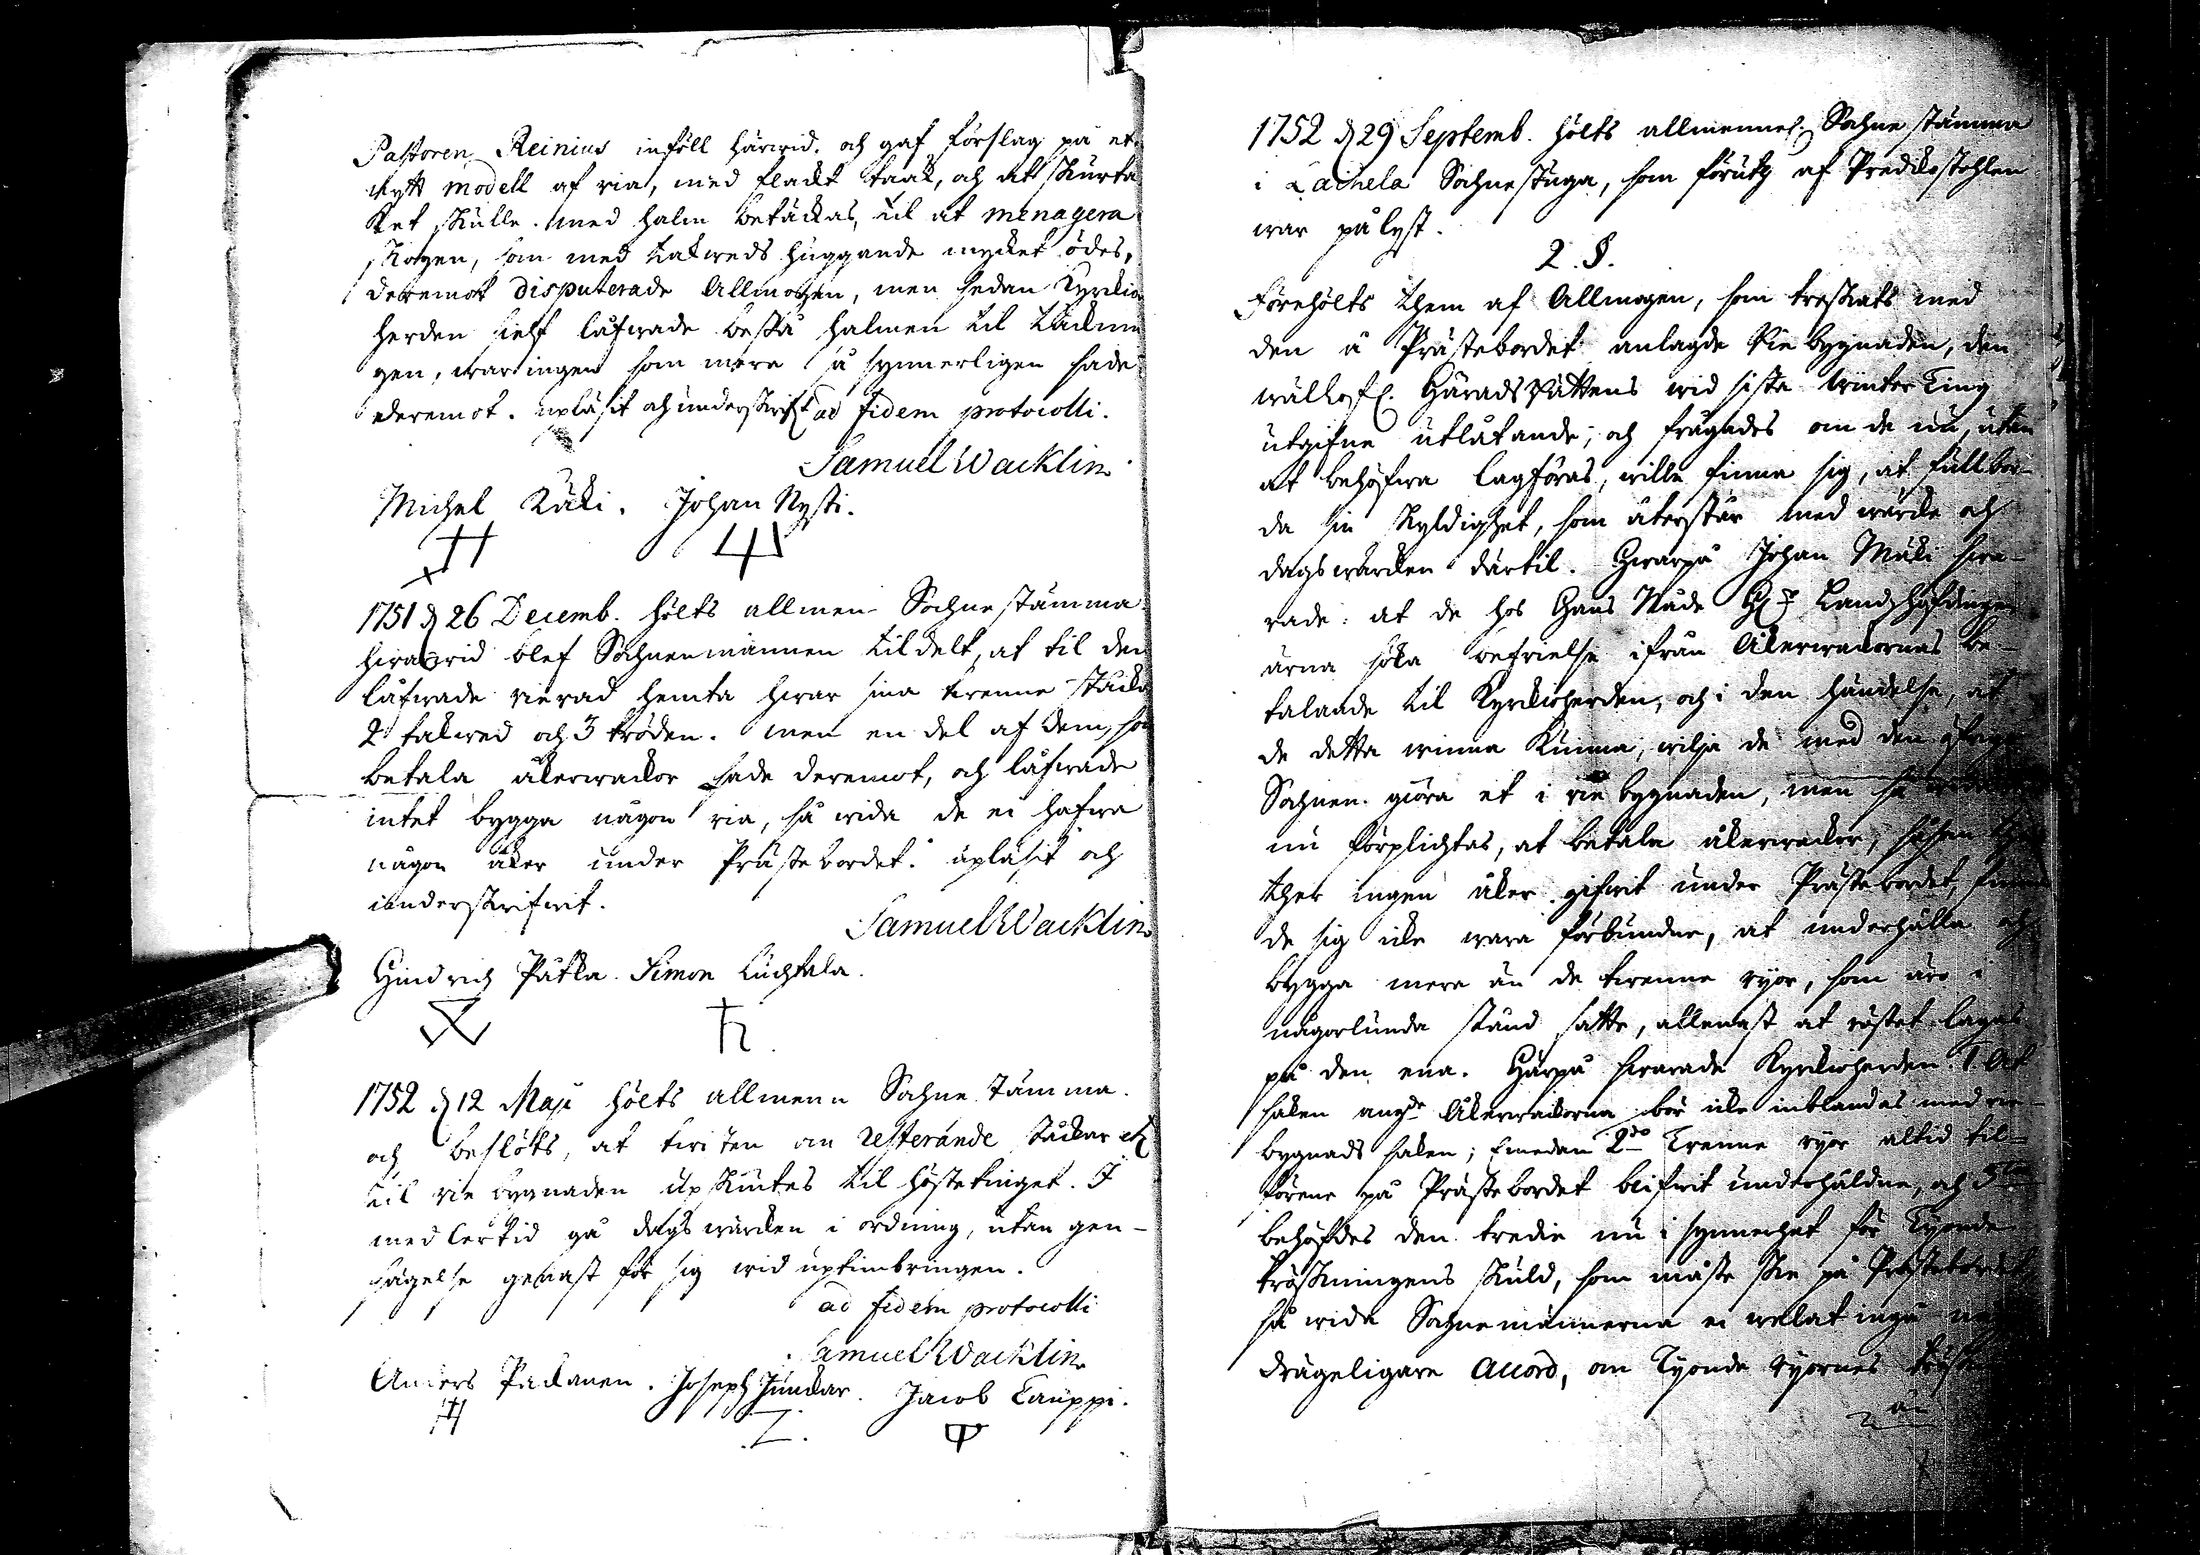 Pastoren Reinius inföll härwid. och gaf förslag på et
nytt modell af ria, med flackt taak, och at skurta
ket skulle med halm betäckas, til at menagera
skogen, som med takweds huggande mycket ödes,
deremot disputerade Allmogen, men sedan Kyrckio
herden sielf låfwade bestå halmen til täcknin
gen, war ingen som mera så synnerligen sade
deremot. upläsit och underskrifit ad fidem protocolli.
Samuel Wacklin
Michel Räcki. Johan Nysti.
1751 d 26 Decemb. hölts allmen Sochnestämma
hwarwid blef Sochnemännen tildelt, at til den
låfwade rie rad hemta hwar sina trenne stäcka
2 takwed och 3 tröden. men en del af dem, som
betala åkerwackor sade deremot, och låfwade
intet bygga någon ria, så wida de ei hafwa
någon åker under Prästebordet. upläsit och
underskrifwit.
Samuel Wacklin
Hindrich Pätkä. Simon Luchtala.
1752 d 12 Maji hölts allmenn Sochne stämma.
och beslöts, at twisten om resterande stäckar etc
til rie bygnaden upskiutes til hösttetinget. I
medlertid gå dagswärcken i ordning, utan gen-
sägelse genast för sig wid uptimbringen.
ad fidem protocolli
Samuel Wacklin
Anders Päckanen. Joseph Junckar. Jacob Lauppi.
1752 d 29 Septemb. hölts allmennel. Sochne stämma
i Laihela Sochnestuga, som förut af Predikostohlen
war pålyst.
2. §.
Förehölts them af Allmogen, som treskats med
den å Prästebordet anlagde Rie bygnaden, den
wällofl. HäradsRättens wid sista winter Ting
utgifne utlåtande; och frågades om de nu, utan
at behöfwa lagföras, wille finna sig, at fullbor-
da sin skyldighet, som återstår med wircke och
dagswärcken därtil. Hwarpå Johan Mäki swa-
rade: at de hos Hans Nåde Hr Landshöfdingen
ärna söka befrielse ifrån Åkerwackornas be-
talande til Kyrckioherden, och i den händelse, at
de detta winna kunna, wilja de med den öfriga
Sochnen giöra et i rie bygnaden, men så wida
nu förplichtas, at betala åkerwackor, såsom
ther ingen åker gifwit under Prästebordet, finna
de sig icke wara förbundne, at underhålla och
bygga mera än de twenne ryor, som äro i
någorlunda stånd satte, allenast at röstet lagas
på den ena. Härpå swarade Kyrckioherden. 1. At
saken angde Åkerwackorna bör icke inblandas med rie
bygnads saken; Emedan 2do Trenne ryor altid til-
förene på Prästebordet blifwit underhåldne, och 3tio
behöfdes den tredie nu i synnerhet för Tyonde
tröskningens skuld, som måste ske på Prästebordet
så wida Sochnemännerna ei welat ingå
drägeligare accord, om Tyonde ryornes
än